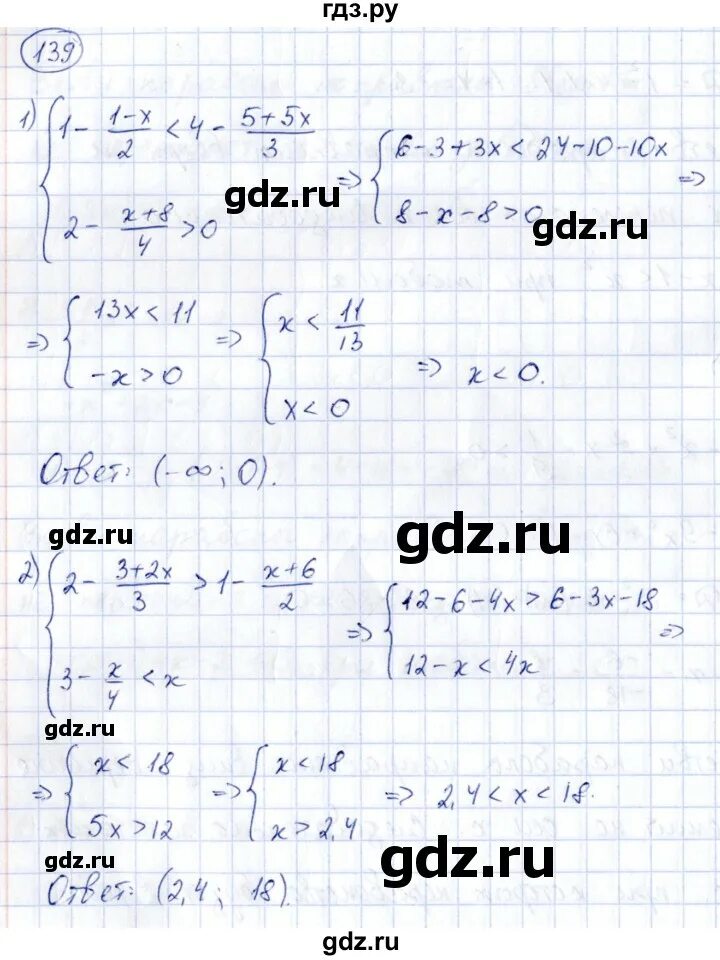 гдз.ру
139
1) { 1 - (1-x)/2 < 4 - (5+5x)/3
2 - (x+8)/4 > 0
=> { 6-3+3x < 24-10-10x
8-x-8>0 =>
gdz.ru
gdz.ru
=> { 13x < 11
-x > 0
=> { x < 11/13
x < 0
=> x < 0.
Ответ: (-∞; 0).
gdz.ru
gdz.ru
2) { 2 - (3+2x)/3 > 1 - (x+6)/2
3 - x/4 < x
=> { 12-6-4x > 6-3x-18
12-x < 4x =>
gdz.ru
=> { x < 18
5x > 12
=> { x < 18
x > 2,4
=> 2,4 < x < 18.
gdz.ru
gdz.ru
Ответ: (2,4; 18).
gdz.ru